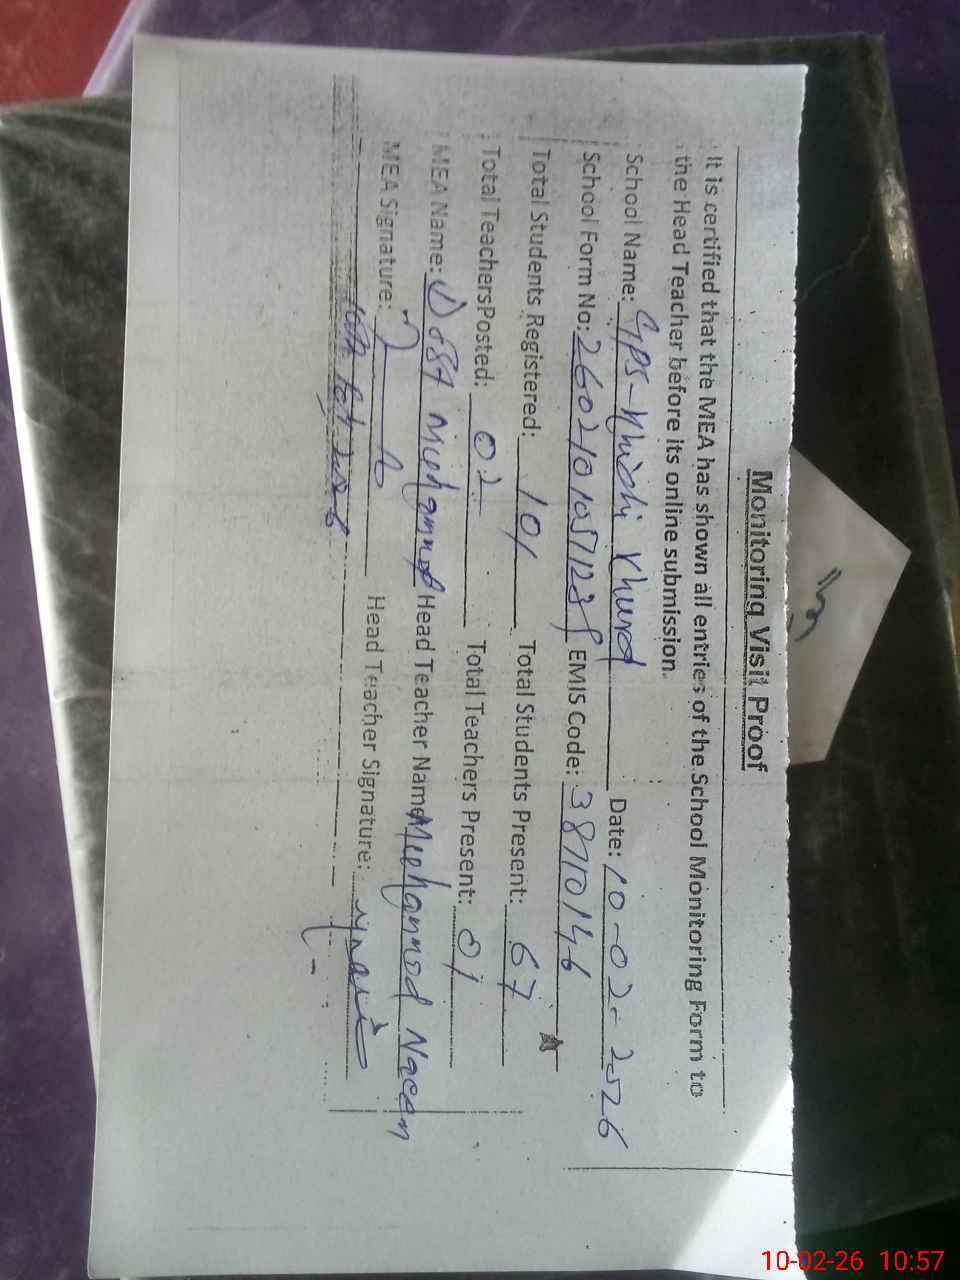 Monitoring Visit Proof
It is certified that the MEA has shown all entries of the School Monitoring Form to
the Head Teacher before its online submission.
School Name: GPS-Khichi Khurd Date: 10-02-2026
School Form No: EMIS Code: 38710146
Total Students Registered: 101 Total Students Present: 67
Total TeachersPosted: 02 Total Teachers Present: 01
MEA Name: Muhammad Head Teacher Name Muhammad Naeem
MEA Signature: Head Teacher Signature:
10-02-26 10:57